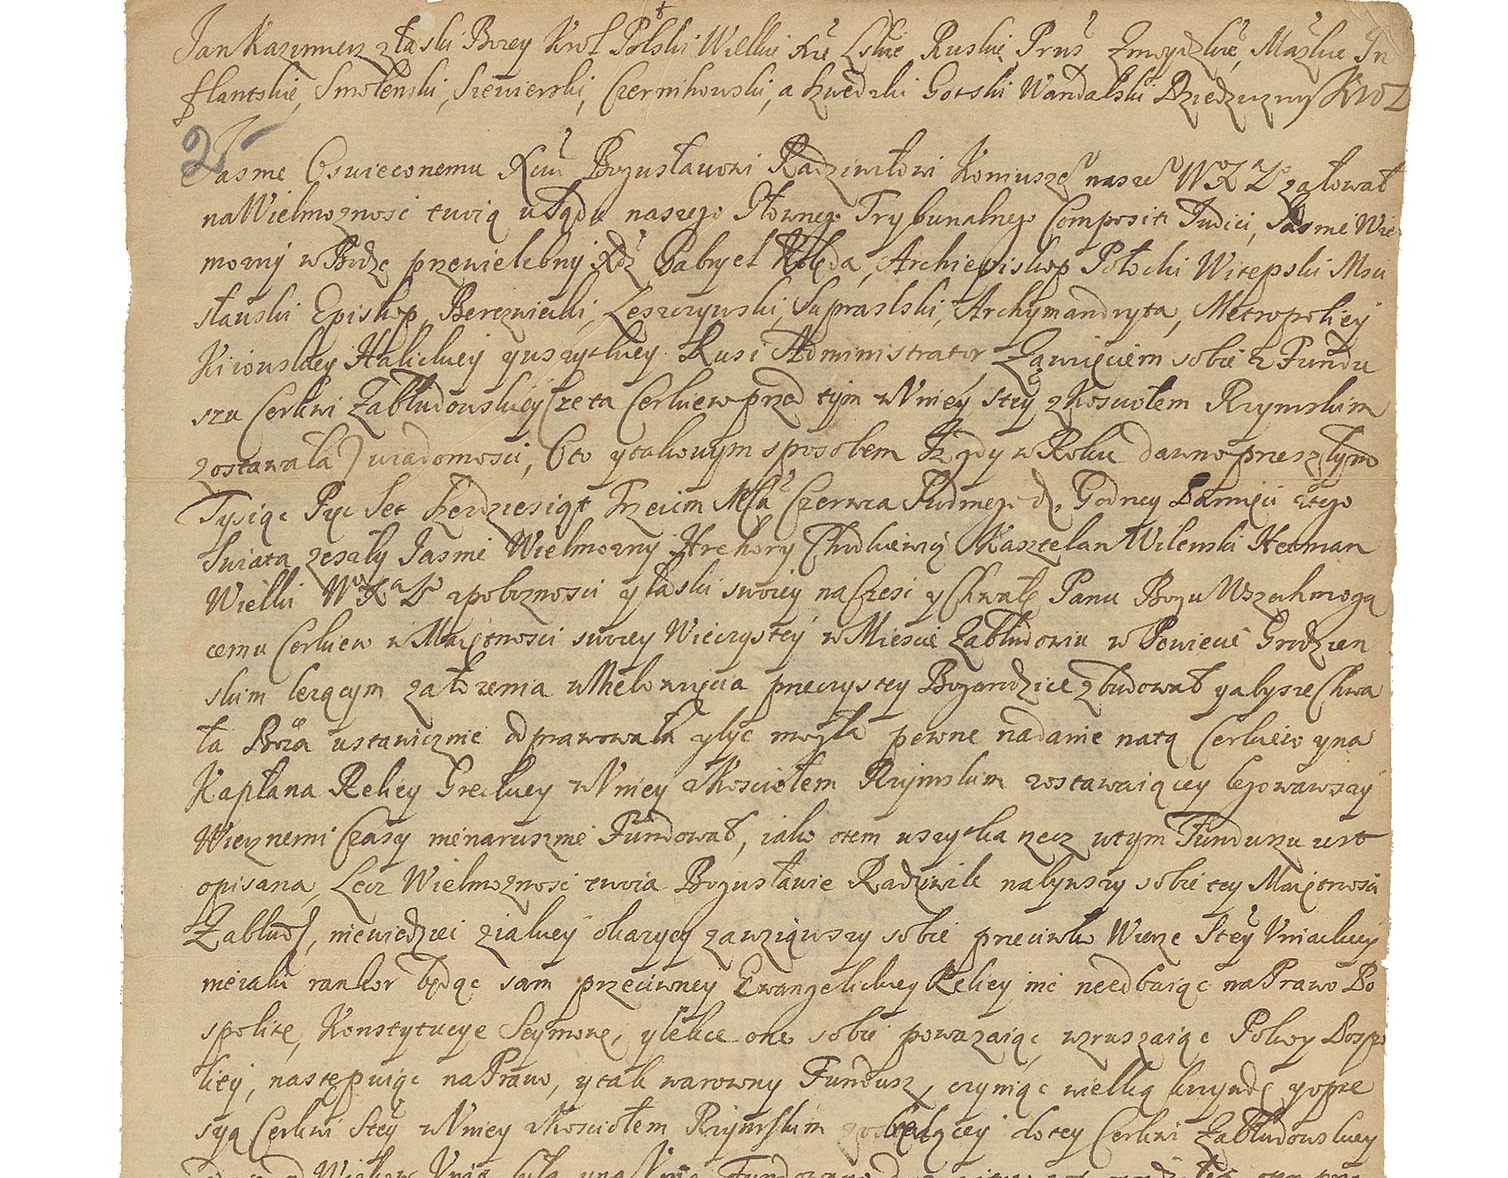 Jan Kazimierz z łaski Bozey Krol Polski Wielki Xże Lskie Ruskie Prus Zmoydzkie, Maz In
flantskie, Smolenski, Siewierski, Czernihowski, a Szwedzki Gotski Wandalski Dziedziczny Krol
2
Jasme Oswieconemu Bogusławowi Radziwiłowi nasze W X L załował
na Wielmoznosc twoią u Sądu naszego Głownego Trybunalnego Compositi Judicii, Jasme Wie
mozny w Bodze przewielebny Xdz Gabryel Kolęda, Archiepiskop Połocki Witepski Msci
sławski Episkop, Berezwecki, Leszczynski, Supraslski, Archymandryta, Metropoliey
Kiiowskiey Halickiey y wszytkiey Rusi Administrator, Zawzięciem sobie z Fundu
szu Cerkwi Zabłudowskiey (ze ta Cerkiew przed tym w Vniey Stey z Kosciołem Rzymskim
zostawała) wiadomosci, Oto y takowym sposobem Iz gdy w Roku dawno przeszłym
Tysiąc Pięc Set Trzecim Msca Czerwca Siodmego d. Godney Pamięci z tego
Swiata zeszły Jasnie Wielmozny Hrehory Chodkiewicz Kasztelan Wilenski Hetman
Wielki W X L z poboznosci y łaski swoiey na Czesc y Chwałę Panu Bogu Wszechmogą
cemu Cerkiew w Maiętnosci swoiey Wieczystey w Miescie Zabłudowiu w Powiecie Grodzien
skim lezącym załozenia przeczystey Bogarodzice zbudował y aby sie Chwa
ła Boża ustawicznie odprawowała y byc mogła pewne nadanie na tą Cerkiew y na
Kapłana Reliey Greckiey w Vniey z Kosciołem Rzymskim zostawaiącey legowawszy
Wiecznemi Czasy nienaruszenie Fundował, iako o tem wszytka rzecz w tym Funduszu iest
opisana, Lecz Wielmoznosc twoia Bogusławie Radziwile nabywszy sobie tey Maiętnosci
Zabłud, niewiedziec z iakiey okazyey zawziąwszy sobie przeciwko Wierze Stey Vniackiey
nieiaki rankor będąc sam przeciwney Ewangelickiey Reliey nic niedbaiąc na Prawo Po
spolite, Konstytucye Seymowe, y lekce one sobie powazaiąc, wzruszaiąc Pokoy Pospo
lity, następuiąc na Prawo, y tak warowny Fundusz, czyniąc wielką krzywdę y opre
syą Cerkwi Stey w Vniey z Kosciołem Rzymskim do tey Cerkwi Zabłudowskiey